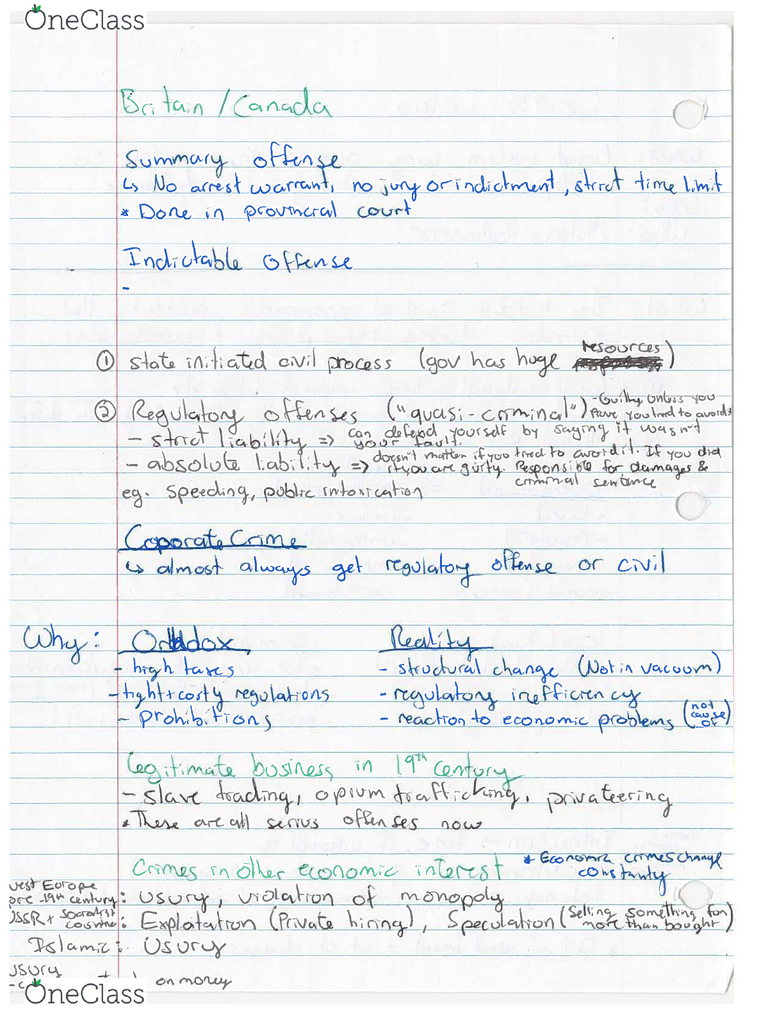 OneClass
Britain / Canada
Summary offense
↳ No arrest warrant, no jury or indictment, strict time limit
* Done in provincial court
Indictable Offense
-
① state initiated civil process (gov has huge resources)
② Regulatory offenses ("quasi-criminal") - Guilty unless you
Pave you tried to avoid it
- strict liability => can defend yourself by saying it wasn't
your fault.
- absolute liability => doesn't matter if you tried to avoid it. If you did
it you are guilty. Responsible for damages &
criminal sentence
eg. speeding, public intoxication
Coporate Crime
↳ almost always get regulatory offense or civil
Why: Orthdox Reality
- high taxes - structural change (Not in vacuum)
- tight + costy regulations - regulatory inefficiency
- prohibitions - reaction to economic problems (not cause of)
Legitimate business in 19th century
- Slave trading, opium trafficking, privateering
* These are all serius offenses now
Crimes in other economic interest * Economic crimes change
constantly
West Europe
pre 19th century: usury, violation of monopoly
USSR + Socialist
: Exploitation (Private hiring), Speculation (Selling something for
more than bought)
Islamic: Usury
usury
on money
OneClass